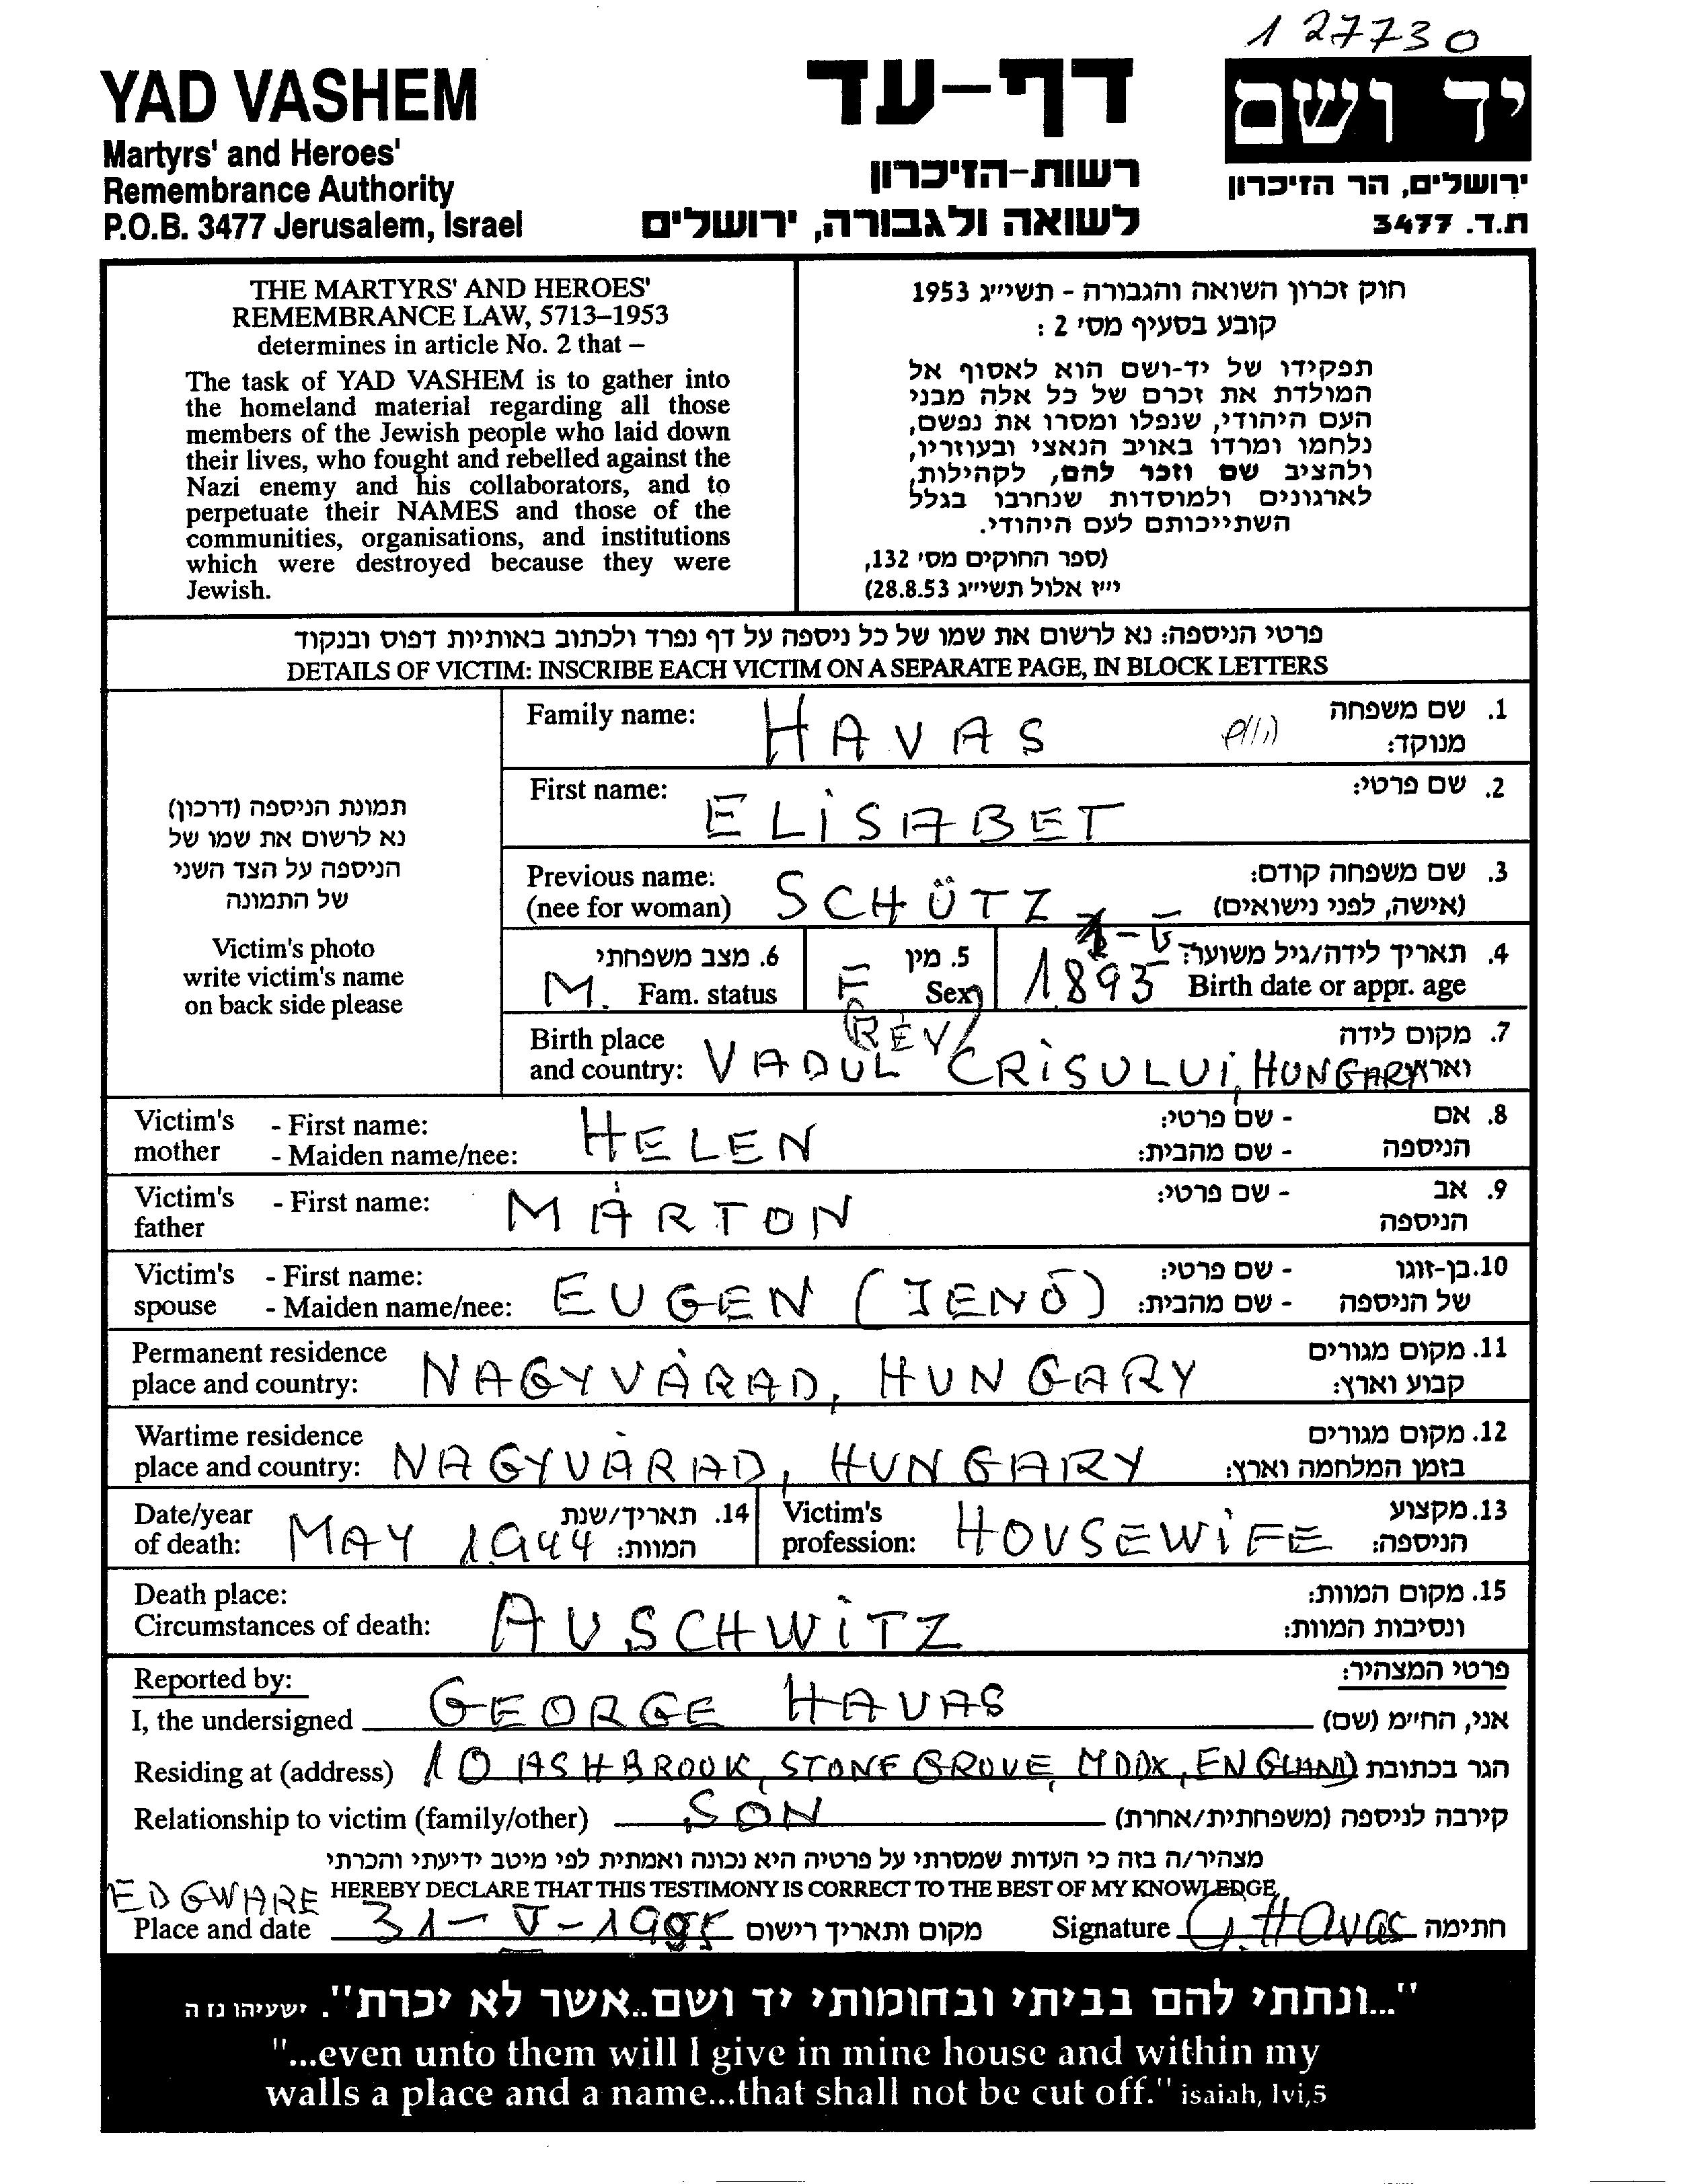 127730
YAD VASHEM
Martyrs' and Heroes'
Remembrance Authority
P.O.B. 3477 Jerusalem, Israel
דף-עד
רשות-הזיכרון
לשואה ולגבורה, ירושלים
יד ושם
ירושלים, הר הזיכרון
ת.ד. 3477
THE MARTYRS' AND HEROES'
REMEMBRANCE LAW, 5713–1953
determines in article No. 2 that –
The task of YAD VASHEM is to gather into
the homeland material regarding all those
members of the Jewish people who laid down
their lives, who fought and rebelled against the
Nazi enemy and his collaborators, and to
perpetuate their NAMES and those of the
communities, organisations, and institutions
which were destroyed because they were
Jewish.
חוק זכרון השואה והגבורה - תשי״ג 1953
קובע בסעיף מס׳ 2 :
תפקידו של יד-ושם הוא לאסוף אל
המולדת את זכרם של כל אלה מבני
העם היהודי, שנפלו ומסרו את נפשם,
נלחמו ומרדו באויב הנאצי ובעוזריו,
ולהציב שם וזכר להם, לקהילות,
לארגונים ולמוסדות שנחרבו בגלל
השתייכותם לעם היהודי.
(ספר החוקים מס׳ 132,
י״ז אלול תשי״ג 28.8.53)
פרטי הניספה: נא לרשום את שמו של כל ניספה על דף נפרד ולכתוב באותיות דפוס ובנקוד
DETAILS OF VICTIM: INSCRIBE EACH VICTIM ON A SEPARATE PAGE, IN BLOCK LETTERS
תמונת הניספה (דרכון)
נא לרשום את שמו של
הניספה על הצד השני
של התמונה
Victim's photo
write victim's name
on back side please
Family name: HAVAS 1. שם משפחה
מנוקד:
First name: ELISABET 2. שם פרטי:
Previous name: 3. שם משפחה קודם:
(nee for woman) SCHÜTZ (אישה, לפני נישואים)
6. מצב משפחתי 5. מין 4. תאריך לידה/גיל משוער:
M. Fam. status F Sex 1893 Birth date or appr. age
(RÉV)
Birth place 7. מקום לידה
and country: VADUL CRISULUI, HUNGARY וארץ
Victim's - First name: HELEN - שם פרטי: 8. אם
mother - Maiden name/nee: - שם מהבית: הניספה
Victim's - First name: MÁRTON - שם פרטי: 9. אב
father הניספה
Victim's - First name: - שם פרטי: 10. בן-זוגו
spouse - Maiden name/nee: EUGEN (JENŐ) - שם מהבית: של הניספה
Permanent residence 11. מקום מגורים
place and country: NAGYVÁRAD, HUNGARY קבוע וארץ:
Wartime residence 12. מקום מגורים
place and country: NAGYVÁRAD, HUNGARY בזמן המלחמה וארץ:
Date/year 14. תאריך/שנת Victim's 13. מקצוע
of death: MAY 1944 המוות: profession: HOUSEWIFE הניספה:
Death place: 15. מקום המוות:
Circumstances of death: AUSCHWITZ ונסיבות המוות:
Reported by: פרטי המצהיר:
I, the undersigned GEORGE HAVAS אני, החי״מ (שם)
Residing at (address) 10 ASHBROOK, STONEGROVE, MDDX, ENGLAND הגר בכתובת
Relationship to victim (family/other) SON קירבה לניספה (משפחתית/אחרת)
מצהיר/ה בזה כי העדות שמסרתי על פרטיה היא נכונה ואמתית לפי מיטב ידיעתי והכרתי
EDGWARE HEREBY DECLARE THAT THIS TESTIMONY IS CORRECT TO THE BEST OF MY KNOWLEDGE,
Place and date 31-V-1995 מקום ותאריך רישום Signature G. Havas חתימה
"...ונתתי להם בביתי ובחומותי יד ושם..אשר לא יכרת". ישעיהו נז ה
"...even unto them will I give in mine house and within my
walls a place and a name...that shall not be cut off." isaiah, lvi,5